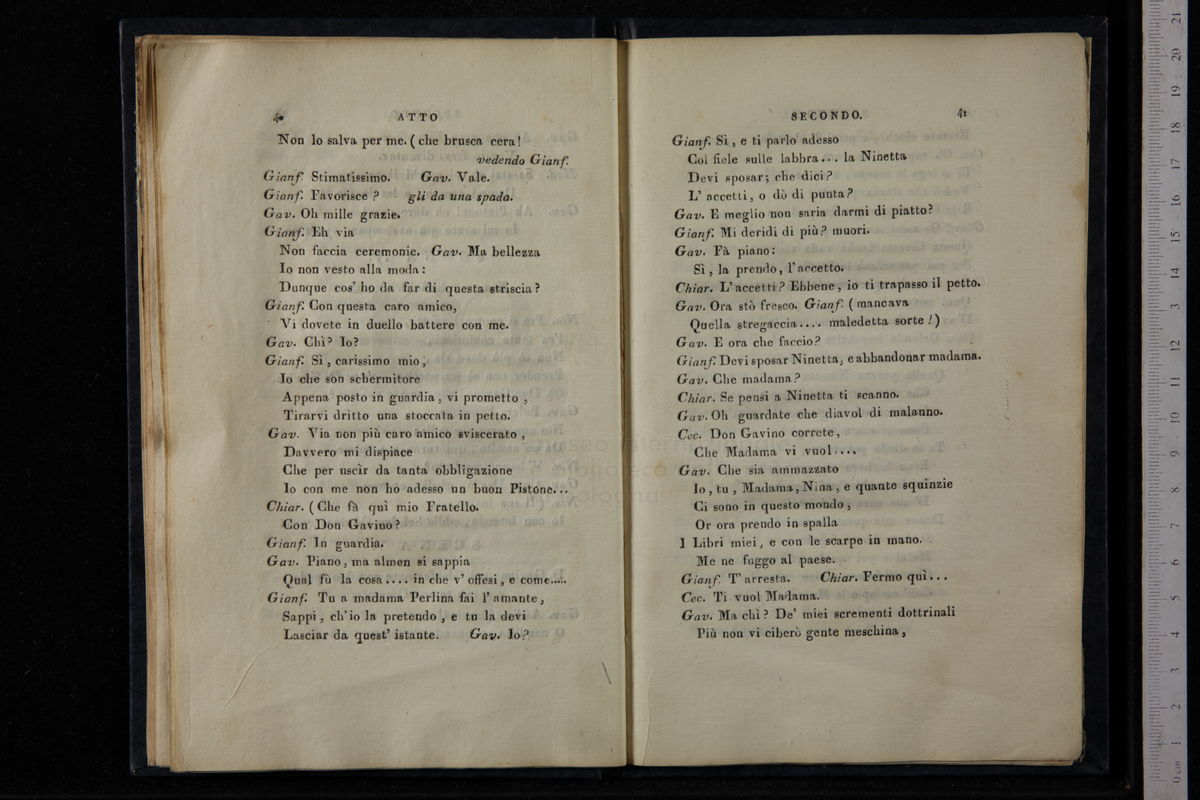 40 ATTO
Non lo salva per me. ( che brusca cera!
vedendo Gianf.
Gianf. Stimatissimo. Gav. Vale.
Gianf. Favorisce? gli da una spada.
Gav. Oh mille grazie.
Gianf. Eh via
Non faccia ceremonie. Gav. Ma bellezza
Io non vesto alla moda:
Dunque cos' ho da far di questa striscia?
Gianf. Con questa caro amico,
Vi dovete in duello battere con me.
Gav. Chì? Io?
Gianf. Sì, carissimo mio,
Io che son schermitore
Appena posto in guardia, vi prometto,
Tirarvi dritto una stoccata in petto.
Gav. Via non più caro amico sviscerato,
Davvero mi dispiace
Che per uscìr da tanta obbligazione
Io con me non ho adesso un buon Pistone...
Chiar. ( Che fà quì mio Fratello.
Con Don Gavino?
Gianf. In guardia.
Gav. Piano, ma almen si sappia
Qual fù la cosa.... in che v' offesi, e come.....
Gianf. Tu a madama Perlina fai l' amante,
Sappi, ch' io la pretendo, e tu la devi
Lasciar da quest' istante. Gav. Io?
SECONDO. 41
Gianf. Sì, e ti parlo adesso
Col fiele sulle labbra... la Ninetta
Devi sposar; che dici?
L' accetti, o dò di punta?
Gav. E meglio non saria darmi di piatto?
Gianf. Mi deridi di più? muori.
Gav. Fà piano:
Sì, la prendo, l'accetto.
Chiar. L' accetti? Ebbene, io ti trapasso il petto.
Gav. Ora stò fresco. Gianf. ( mancava
Quella stregaccia.... maledetta sorte!)
Gav. E ora che faccio?
Gianf. Devi sposar Ninetta, e abbandonar madama.
Gav. Che madama?
Chiar. Se pensi a Ninetta ti scanno.
Gav. Oh guardate che diavol di malanno.
Cec. Don Gavino correte,
Che Madama vi vuol....
Gav. Che sia ammazzato
Io, tu, Madama, Nina, e quante squinzie
Ci sono in questo mondo,
Or ora prendo in spalla
I Libri miei, e con le scarpe in mano.
Me ne fuggo al paese.
Gianf. T' arresta. Chiar. Fermo quì...
Cec. Ti vuol Madama.
Gav. Ma chì? De' miei scrementi dottrinali
Più non vi ciberò gente meschina,